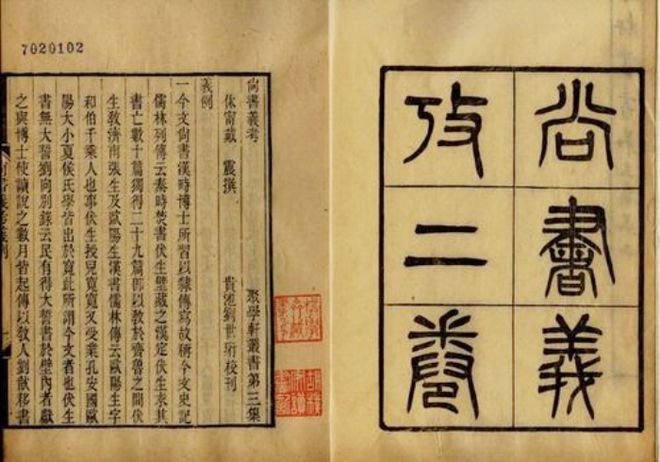 7020102
尚書義
攷二卷
尚書義考 聚學軒叢書第三集
休甯戴 震撰 貴池劉世珩校刊
義例
一今文尚書漢時博士所習以隸傳寫故稱今文史記
儒林列傳云秦時焚書伏生壁藏之漢定伏生求其
書亡數十篇獨得二十九篇卽以敎於齊魯之間伏
生敎濟南張生及歐陽生漢書儒林傳云歐陽生字
和伯千乘人也事伏生授兒寬寬又受業孔安國歐
陽大小夏侯氏學皆出於寬此所謂今文者也伏生
書無大誓劉向別錄云民有得大誓書於壁內者獻
之與博士使讀說之數月皆起傳以敎人劉歆移書